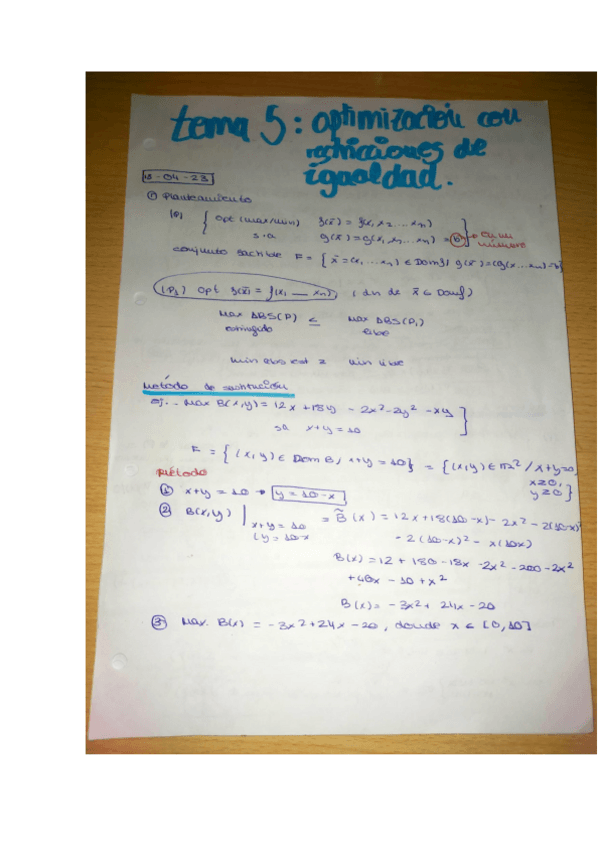 tema 5: optimización con
restricciones de
igualdad.
18-04-23
① Planteamiento
(P) { opt (max/min) f(x̄) = f(x₁ x₂ ... xₙ)
s.a g(x̄) = g(x₁, x₂ ... xₙ) = b → es un
número
conjunto factible F = { x̄ = (x₁ ... xₙ) ∈ Dom f / g(x̄) = (g(x ... xₙ) = b }
(P₁) opt f(x̄) = f(x₁ ... xₙ) , ( dn de x̄ ∈ Dom f )
Max ABS (P) ≤ Max ABS (P₁)
restringido libre
Min abs est ≥ Min libre
Método de sustitución
ej.- Max B(x,y) = 12x + 18y - 2x² - 2y² - xy
sa x+y = 10
F = { (x,y) ∈ Dom B / x+y = 10 } = { (x,y) ∈ ℝ² / x+y=10,
x≥0,
y≥0 }
Método
① x+y = 10 → y = 10-x
② B(x,y) | x+y = 10 = B̃(x) = 12x + 18(10-x) - 2x² - 2(10-x)²
( y = 10-x - 2(10-x)² - x(10x)
B(x) = 12 + 180 - 18x - 2x² - 200 - 2x²
+ 40x - 10 + x²
B(x) = - 3x² + 24x - 20
③ Max. B(x) = - 3x² + 24x - 20 , donde x ∈ [0, 10]